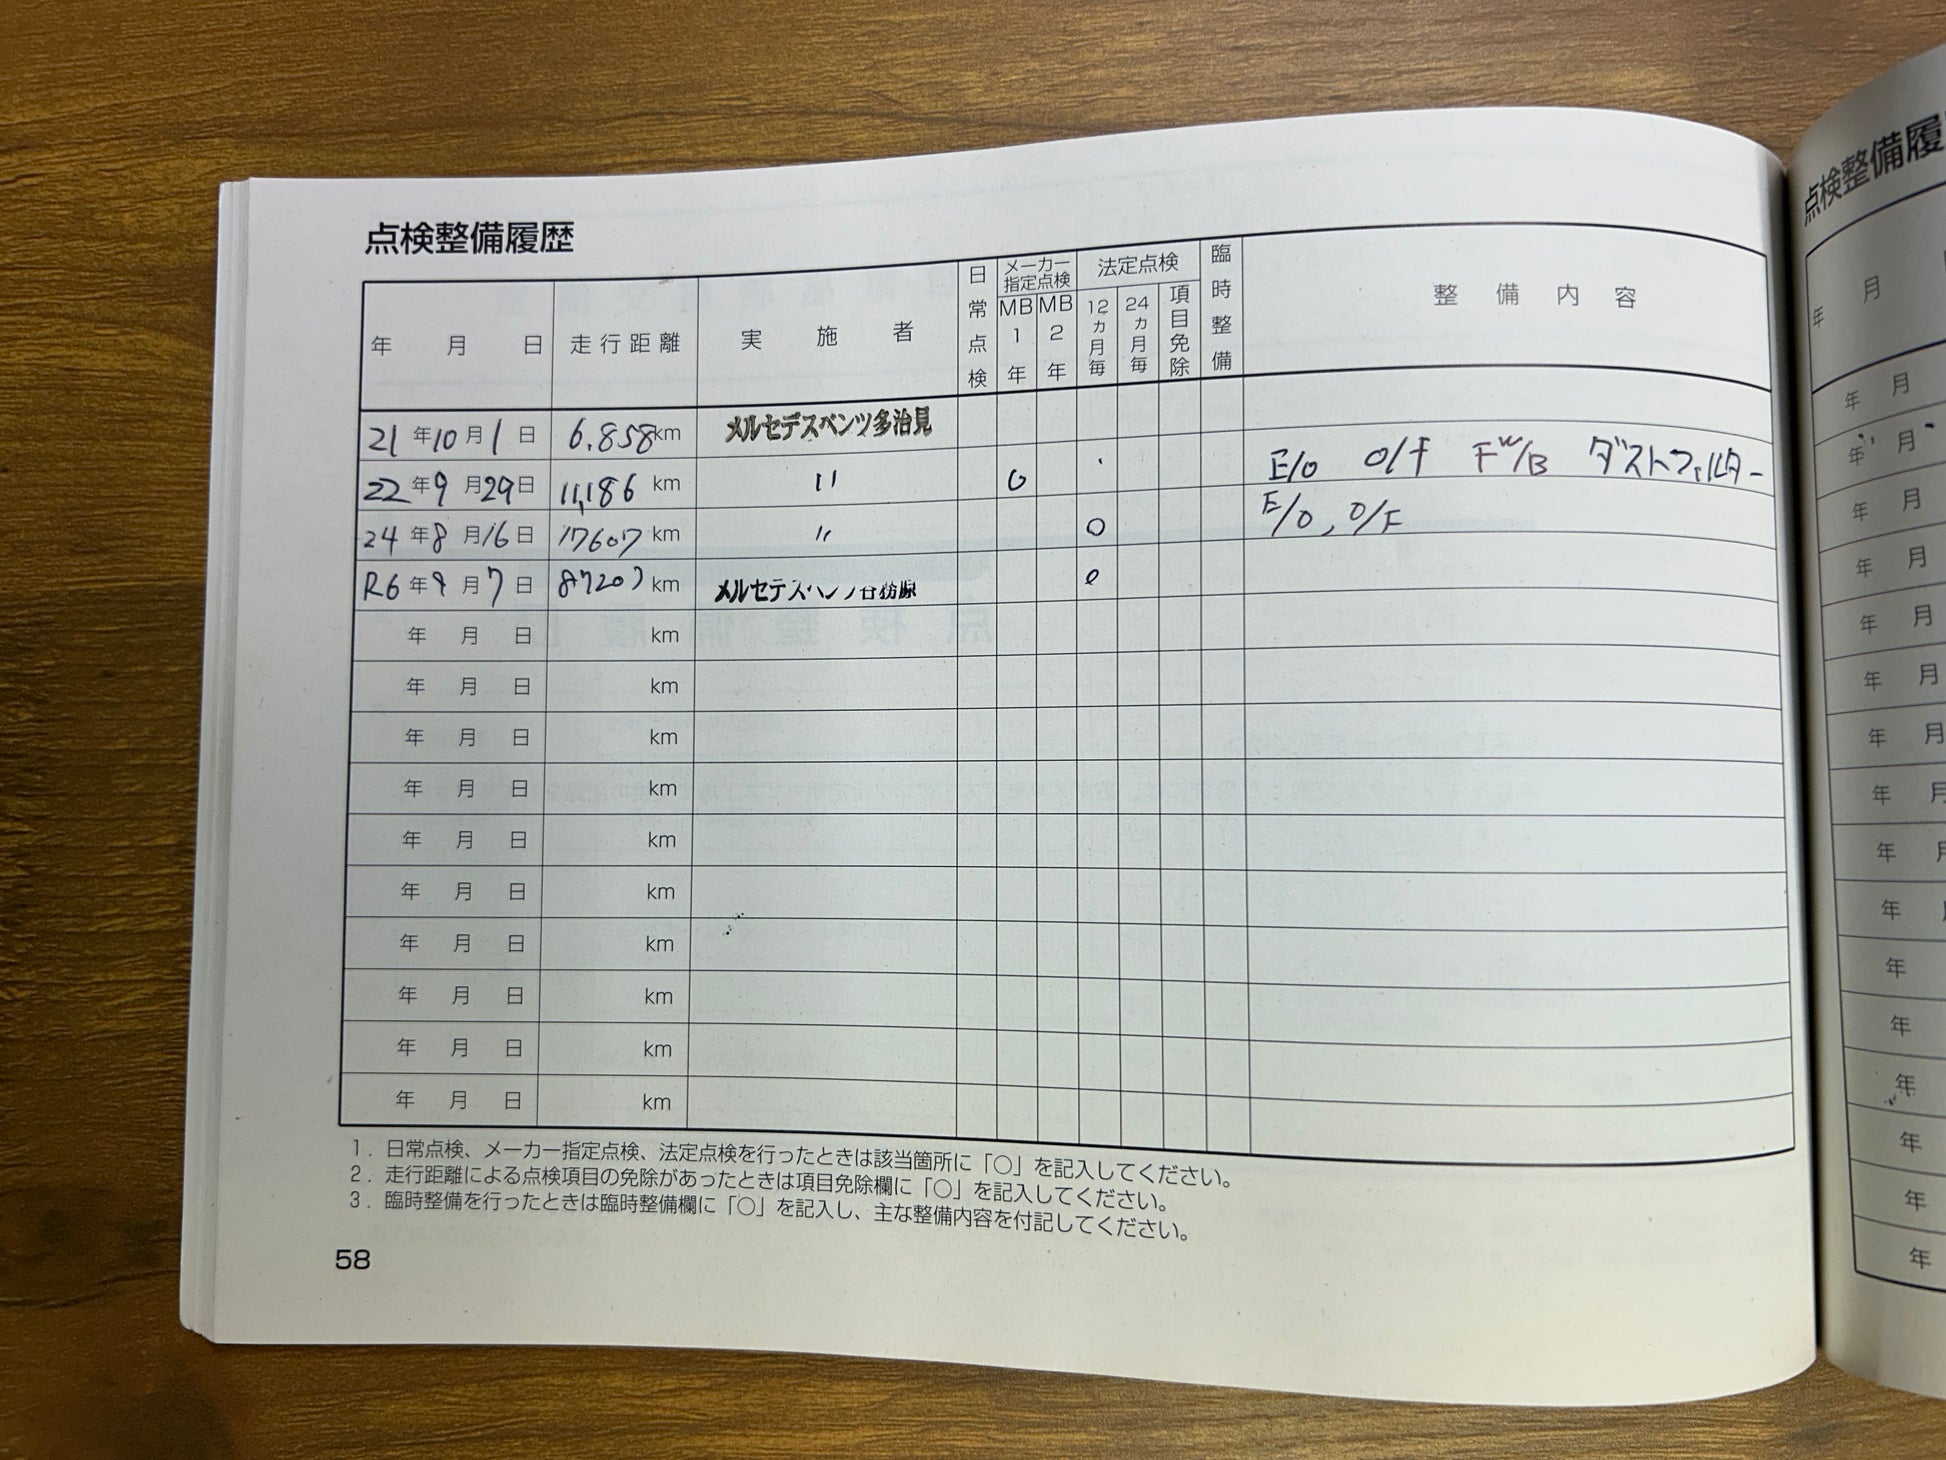 点検整備履歴
年 月 日 走行距離 実施者 日常点検 メーカー指定点検 MB1年 MB2年 法定点検 12カ月毎 24カ月毎 項目免除 臨時整備 整備内容
21年10月1日 6.858km メルセデスベンツ多治見
22年9月29日 11,186km 〃 ○ E/O O/F F W/B ダストフィルター
24年8月16日 17607km 〃 ○ E/O, O/F
R6年9月7日 87207km メルセデスベンツ各務原 ○
年 月 日 km
年 月 日 km
年 月 日 km
年 月 日 km
年 月 日 km
年 月 日 km
年 月 日 km
年 月 日 km
年 月 日 km
年 月 日 km
1. 日常点検、メーカー指定点検、法定点検を行ったときは該当箇所に「○」を記入してください。
2. 走行距離による点検項目の免除があったときは項目免除欄に「○」を記入してください。
3. 臨時整備を行ったときは臨時整備欄に「○」を記入し、主な整備内容を付記してください。
58
点検整備履
年 月
年 月
年 月
年 月
年 月
年 月
年 月
年 月
年 月
年 月
年
年
年
年
年
年
年